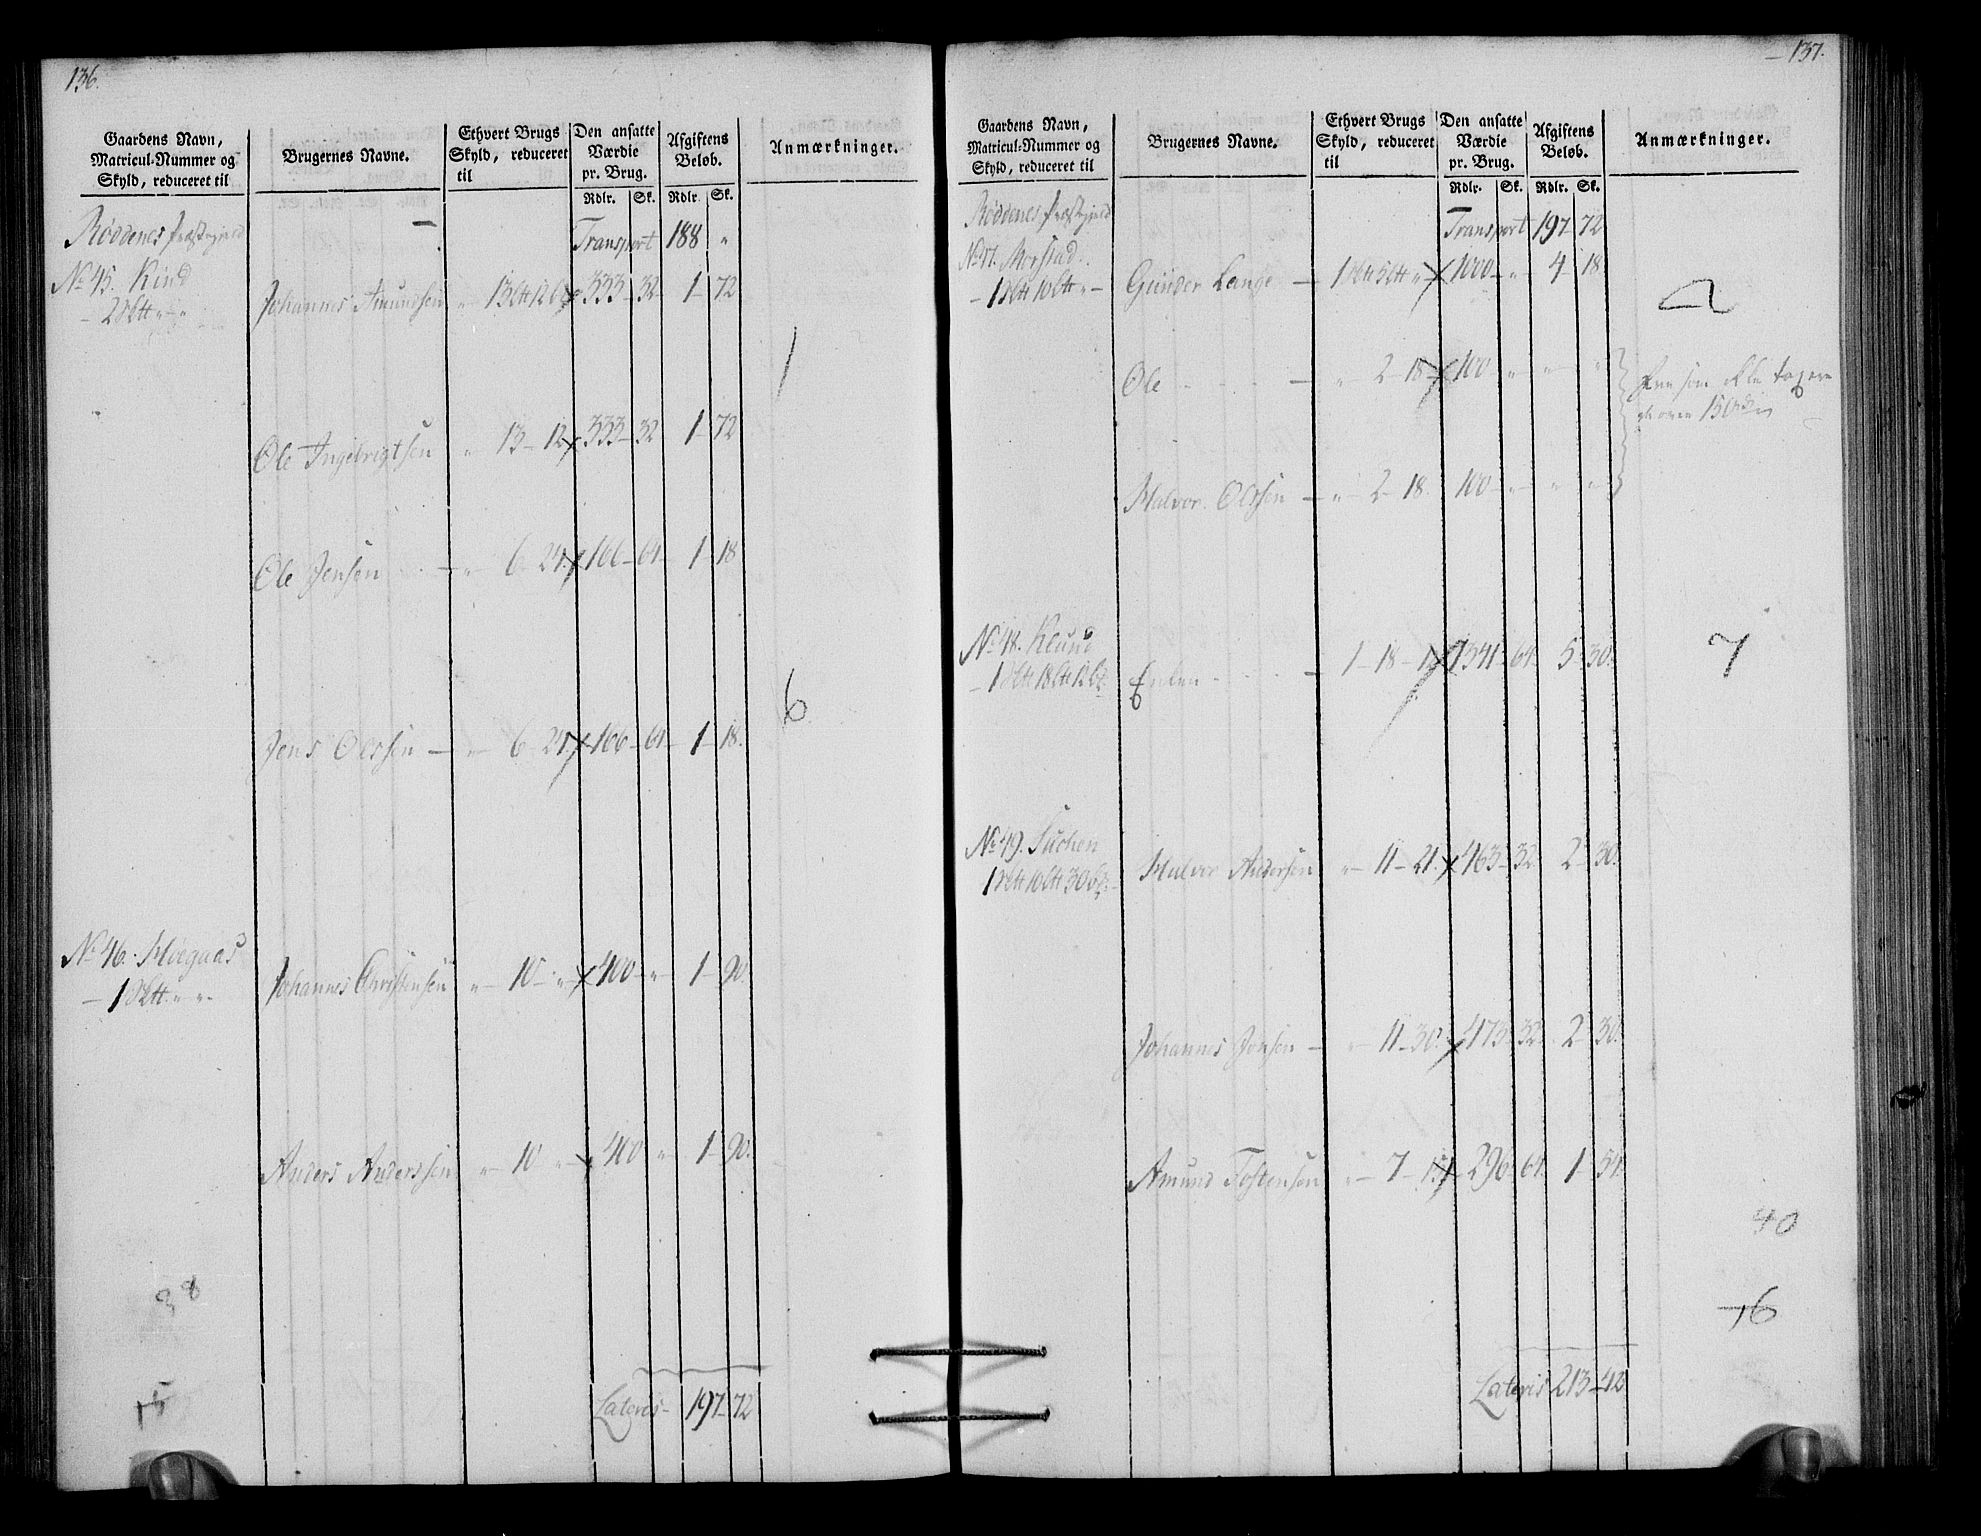 136.
Gaardens Navn, Matricul-Nummer og Skyld, reduceret til
Brugernes Navne.
Ethvert Brugs Skyld, reduceret til
Den ansatte Værdie pr. Brug.
Afgiftens Beløb.
Anmærkninger.
Rdlr. Sk. Rdlr. Sk.
Røddenes Præstegjeld — Transport 188 "
No 45. Kind
Johannes Amundsen " 13 12 333 - 32 1 - 72
1
Ole Ingebrigtsen " 13 - 12 333 - 32 1 - 72
Ole Jensen - " 6 - 24 166 - 64 - 1 - 18
6
Jens Olssen — " 6 - 24 166 - 64 - 1 - 18.
No 46.
Johannes Christensen " 10 - " 400 - " 1 - 90.
Anders Anderssen " 10 " 400 " 1 - 90.
38
15
Lateris - 197 - 72
137.
Gaardens Navn, Matricul-Nummer og Skyld, reduceret til
Brugernes Navne.
Ethvert Brugs Skyld, reduceret til
Den ansatte Værdie pr. Brug.
Afgiftens Beløb.
Anmærkninger.
Rdlr. Sk. Rdlr. Sk.
Røddenes Præstegjeld Transport 197 72
No 47. Morstad.
Gunder Lange — 1000 - " 4 18
Ole — " 2 - 18 - 100 " " "
Halvor Olssen — " 2 - 18. 100 - " " "
No 48. Klund
Enken - 1 - 18 - 12 1341 - 64 5 - 30.
7
No 49. Suchen
Halvor Andersen " 11 - 21. 463 - 32 2 - 30.
Johannes Jensen — " 11 - 30. 473 - 32 2 - 30.
Amund Tostensen " 7 - 15 296 - 64. 1 - 54.
40
16
Lateris 213 - 42